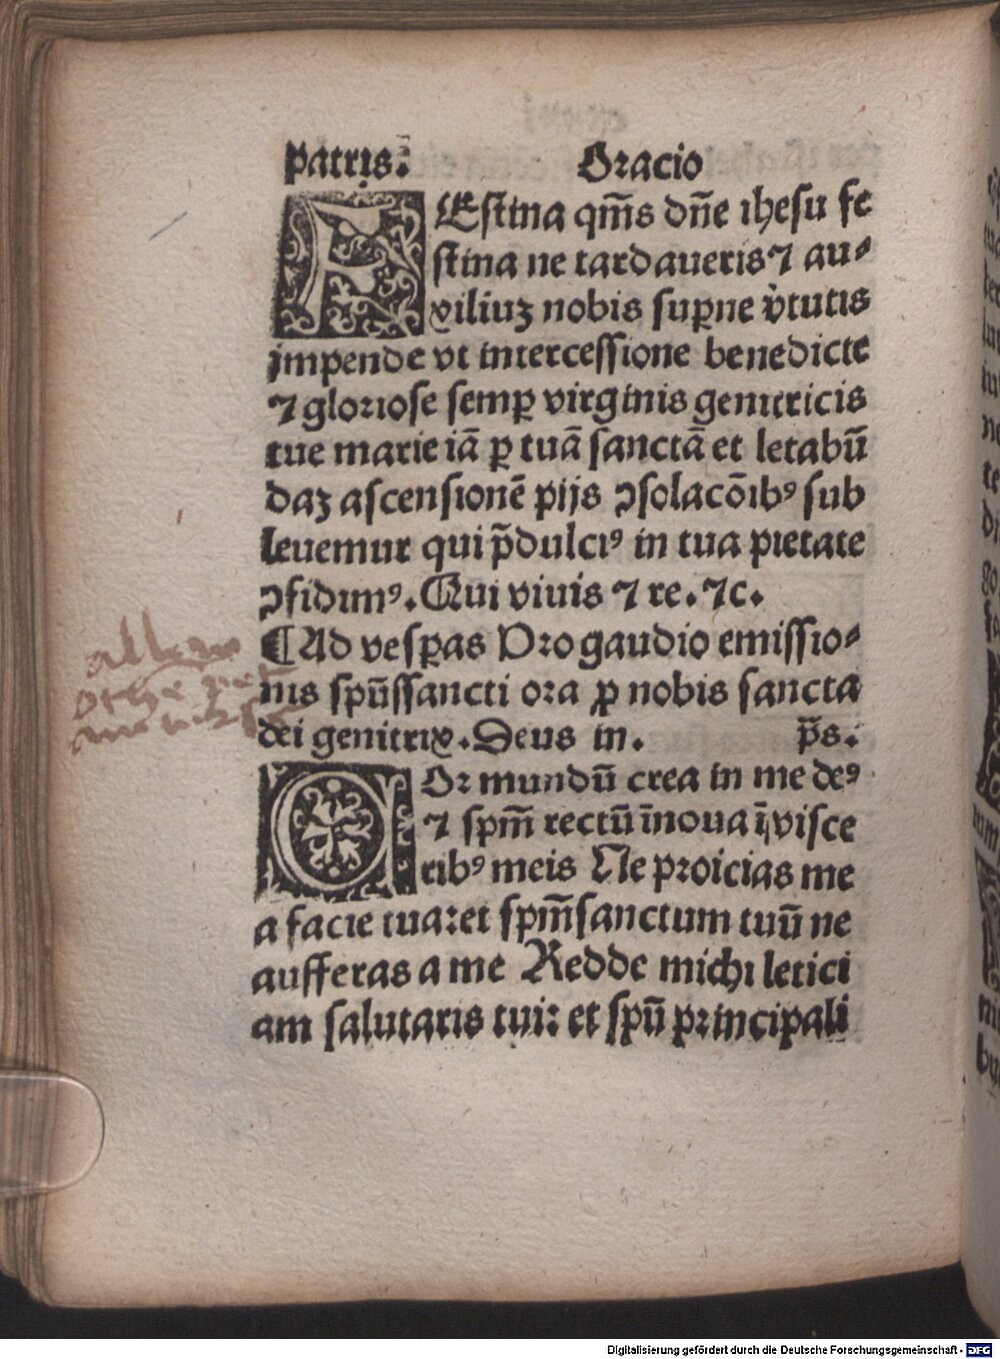 patris: Oracio
FEstina qm̄s dn̄e ihesu fe
stina ne tardaueris ⁊ au⸗
xiliuʒ nobis suꝑne v̓tutis
impende vt intercessione benedicte
⁊ gloriose semꝑ virginis genitricis
tue marie iā ꝑ tuā sanctā et letabū
daʒ ascensionē pijs ꝯsolacōibꝰ sub
leuemur qui p̄dulciꝰ in tua pietate
ꝯfidimꝰ. Qui viuis ⁊ re. ⁊c.
¶ Ad vesꝑas Pro gaudio emissio⸗
nis spūssancti ora ꝓ nobis sancta
dei genitrix. Deus in. p̄s.
COr mundū crea in me deꝰ
⁊ spm̄ rectū īnoua ī visce
ribꝰ meis Ne proicias me
a facie tua: et spm̄sanctum tuū ne
aufferas a me Redde michi letici
am salutaris tui: et spū principali
Digitalisierung gefördert durch die Deutsche Forschungsgemeinschaft - DFG